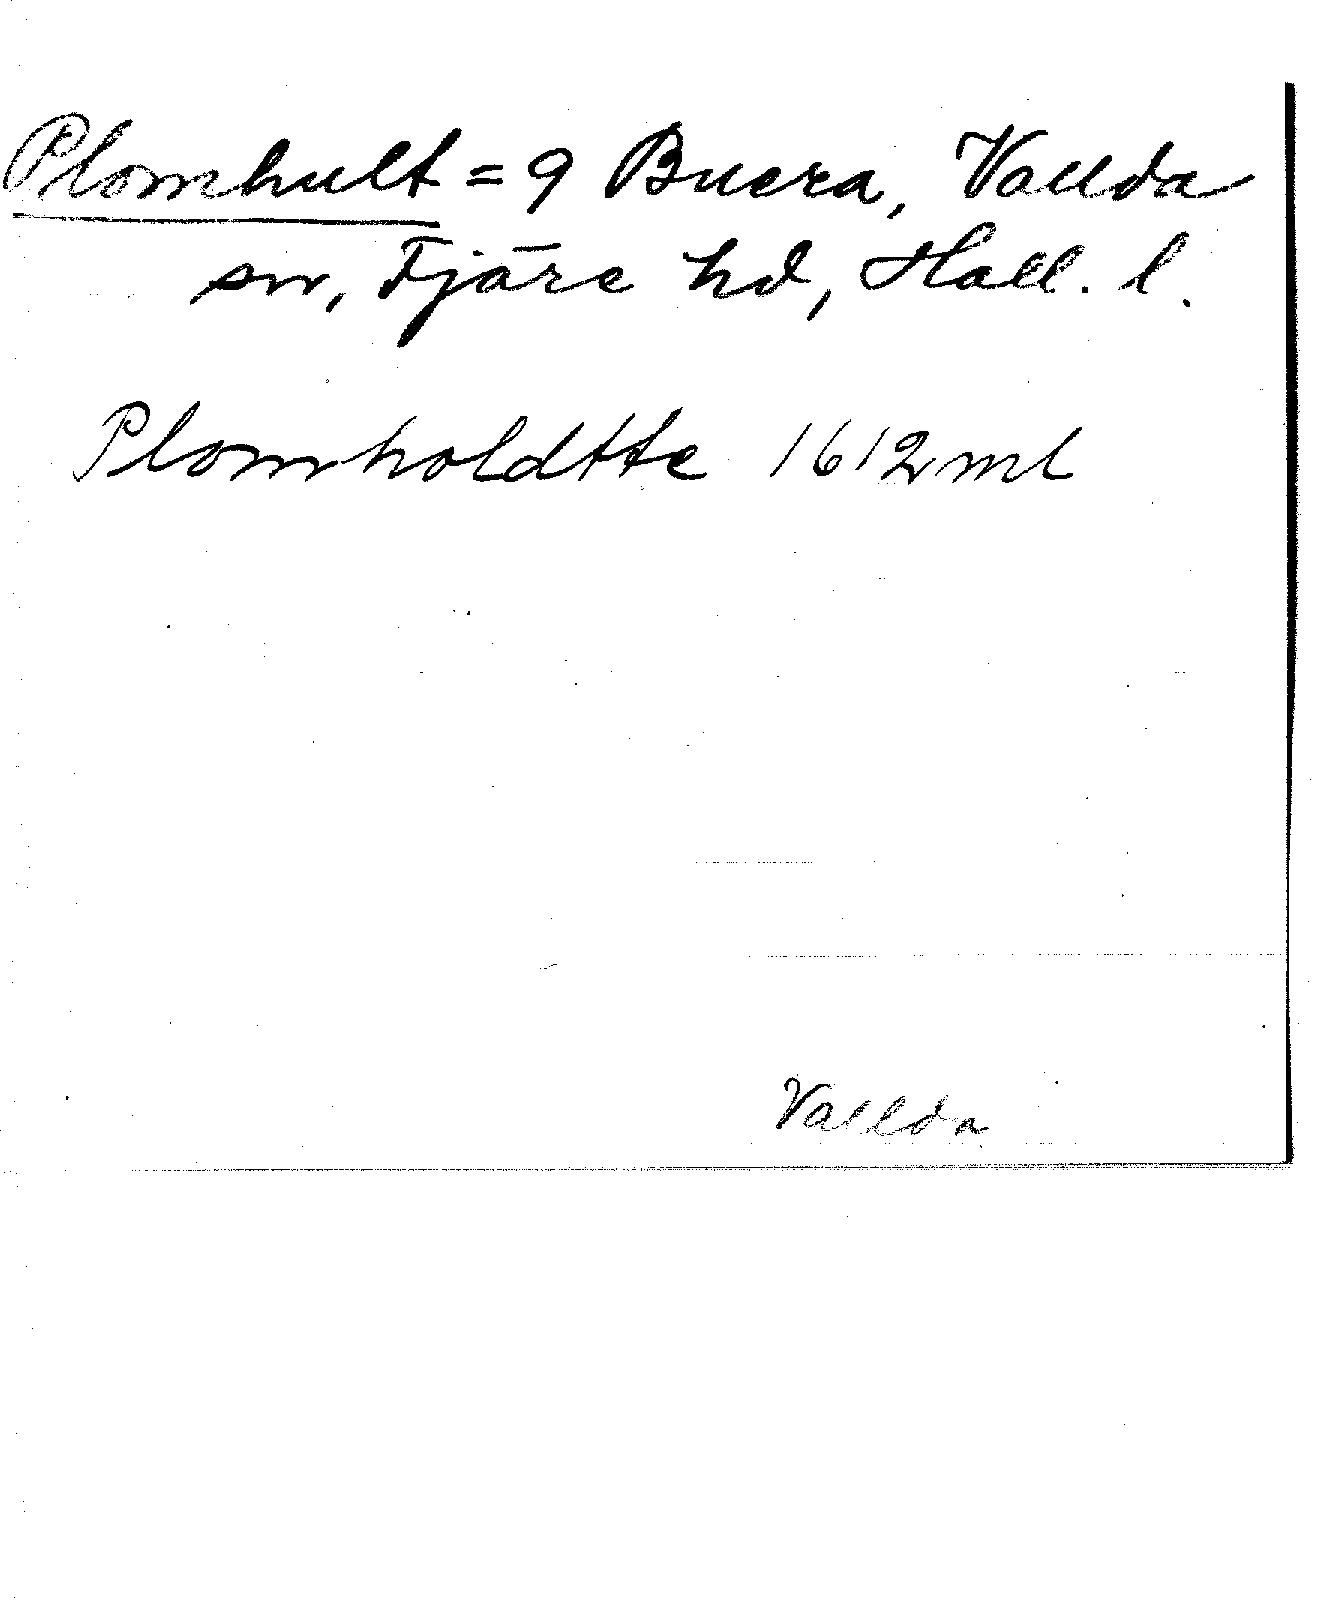 Plomhult = 9 Buera, Vallda
sn, Fjäre hd, Hall. l.
Plomholdtte 1612 ml
Vallda